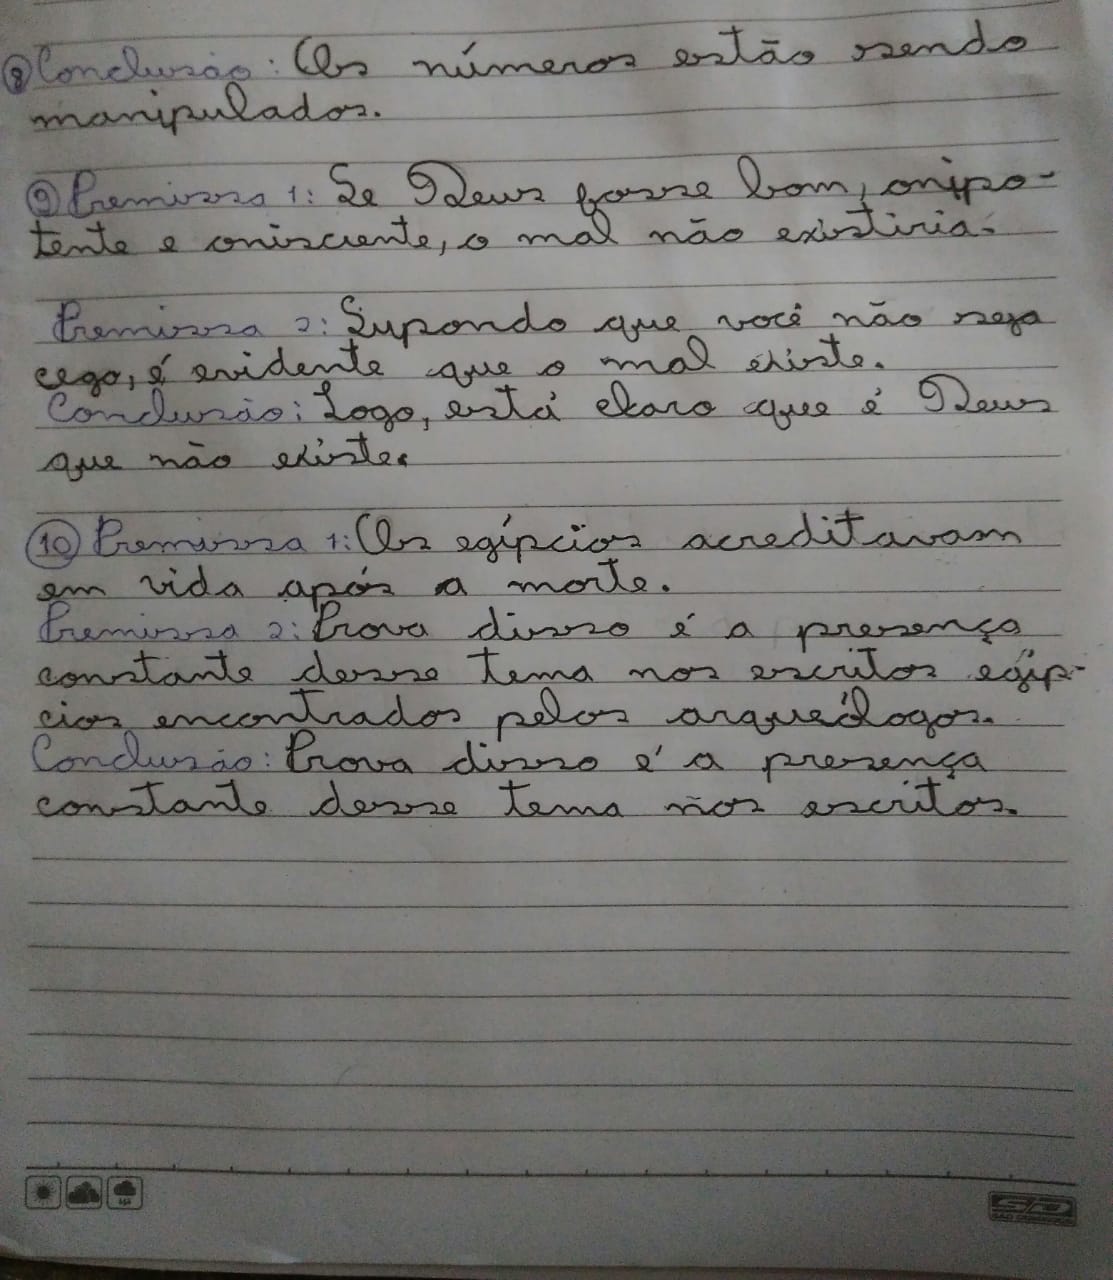 ⑧ Conclusão: Os números estão sendo
manipulados.
⑨ Premissa 1: Se Deus fosse bom, onipo-
tente e onisciente, o mal não existiria.
Premissa 2: Supondo que você não seja
cego, é evidente que o mal existe.
Conclusão: Logo, está claro que é Deus
que não existe.
⑩ Premissa 1: Os egípcios acreditavam
em vida após a morte.
Premissa 2: Prova disso é a presença
constante desse tema nos escritos egíp-
cios encontrados pelos arqueólogos.
Conclusão: Prova disso é a presença
constante desse tema nos escritos.
SD
SÃO DOMINGOS